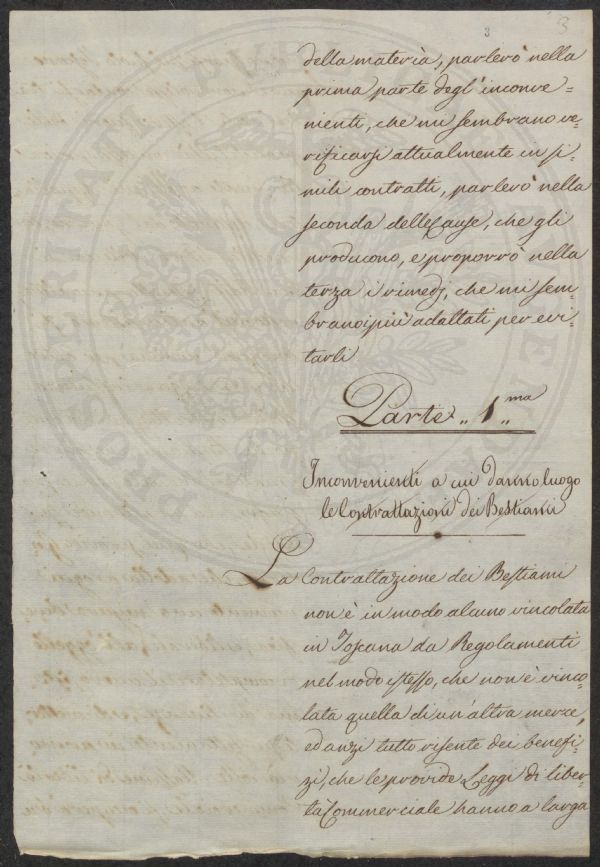 3
3
della materia, parlerò nella
prima parte degl'inconve=
nienti, che mi sembrano ve=
rificarsi attualmente in si=
mili contratti, parlerò nella
seconda delle Cause, che gli
producono, e proporrò nella
terza i rimedj, che mi sem
brano i più adattati per evi
tarli
Parte „ 1„ma
Inconvenienti a cui danno luogo
le Contrattazioni dei Bestiami
La Contrattazione dei Bestiami
non è in modo alcuno vincolata
in Toscana da Regolamenti
nel modo istesso, che non è vinco=
lata quella di un'altra merce,
ed anzi tutto risente dei benefi=
zi, che le provide Leggi di liber=
tà Commerciale hanno a larga